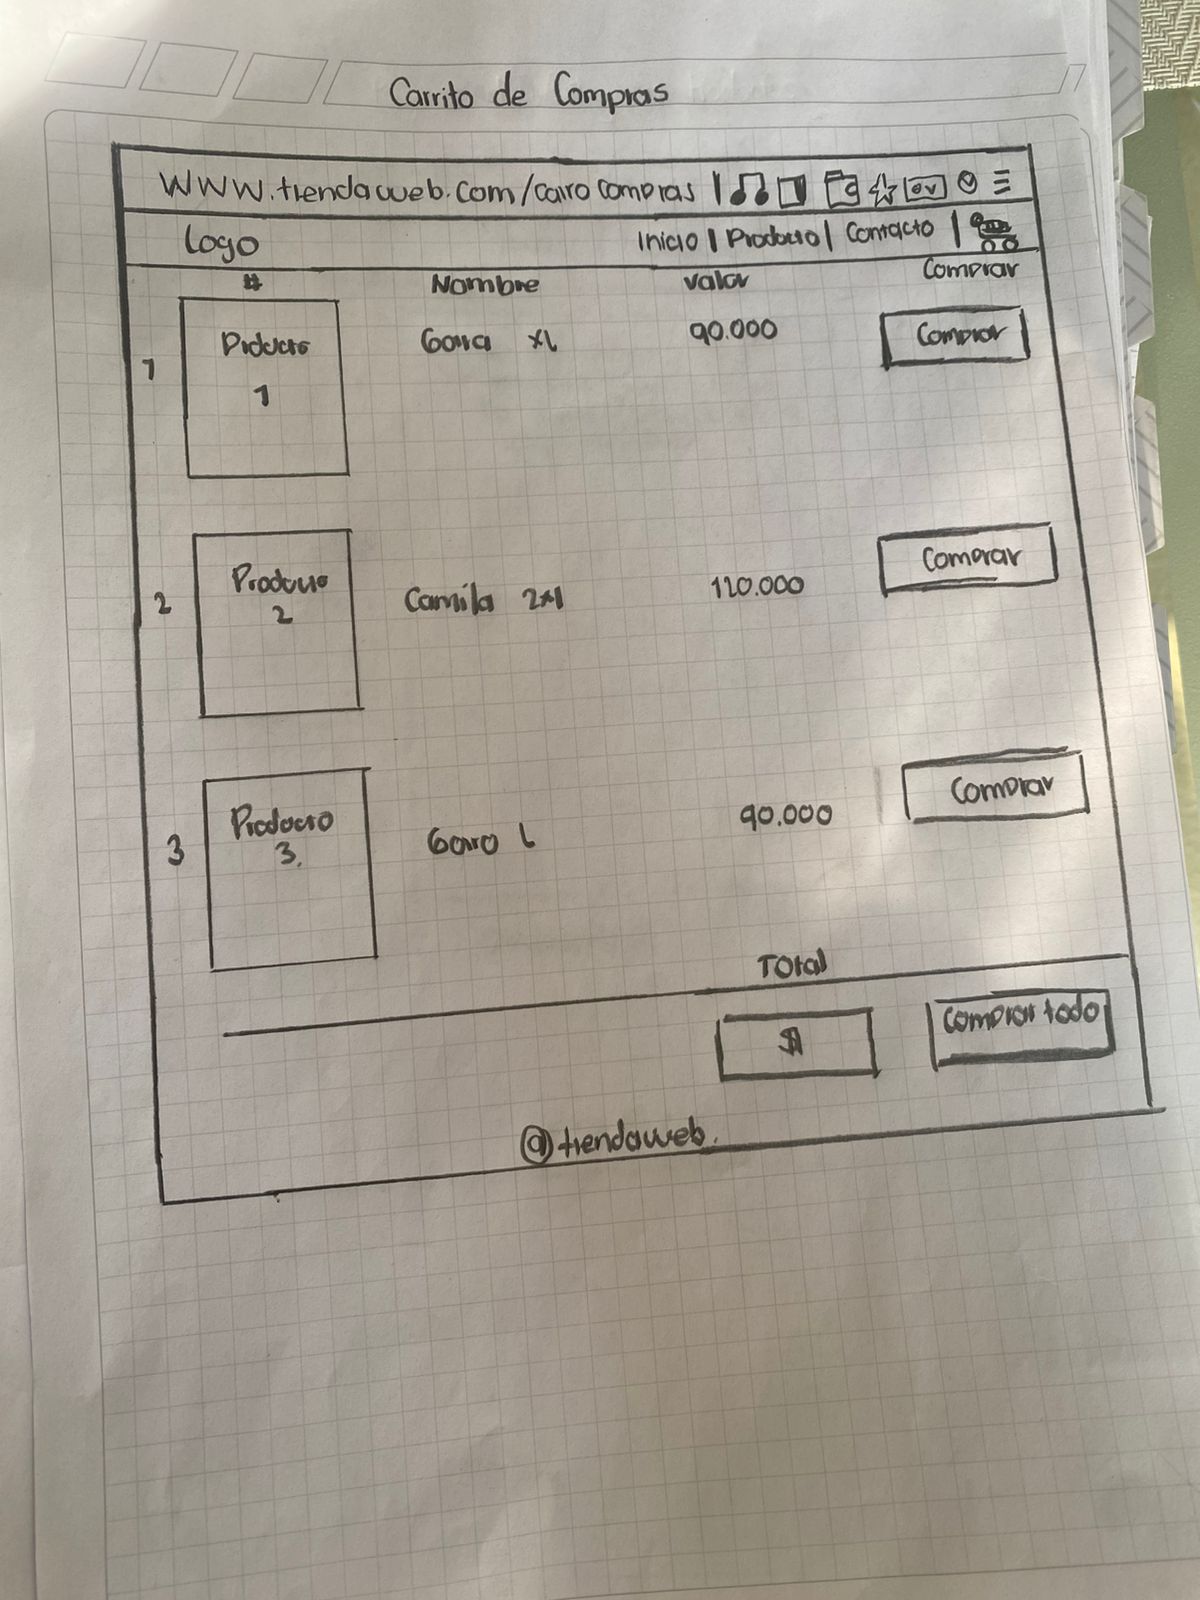 Carrito de Compras
www.tiendaweb.com/carrocompras
Logo
Inicio | Producto | Contacto |
# Nombre Valor Comprar
1 Producto 1 Gorra XL 90.000 Comprar
2 Producto 2 Camila 2x1 120.000 Comprar
3 Producto 3. Gorro L 90.000 Comprar
Total
$ Comprar todo
@tiendaweb.